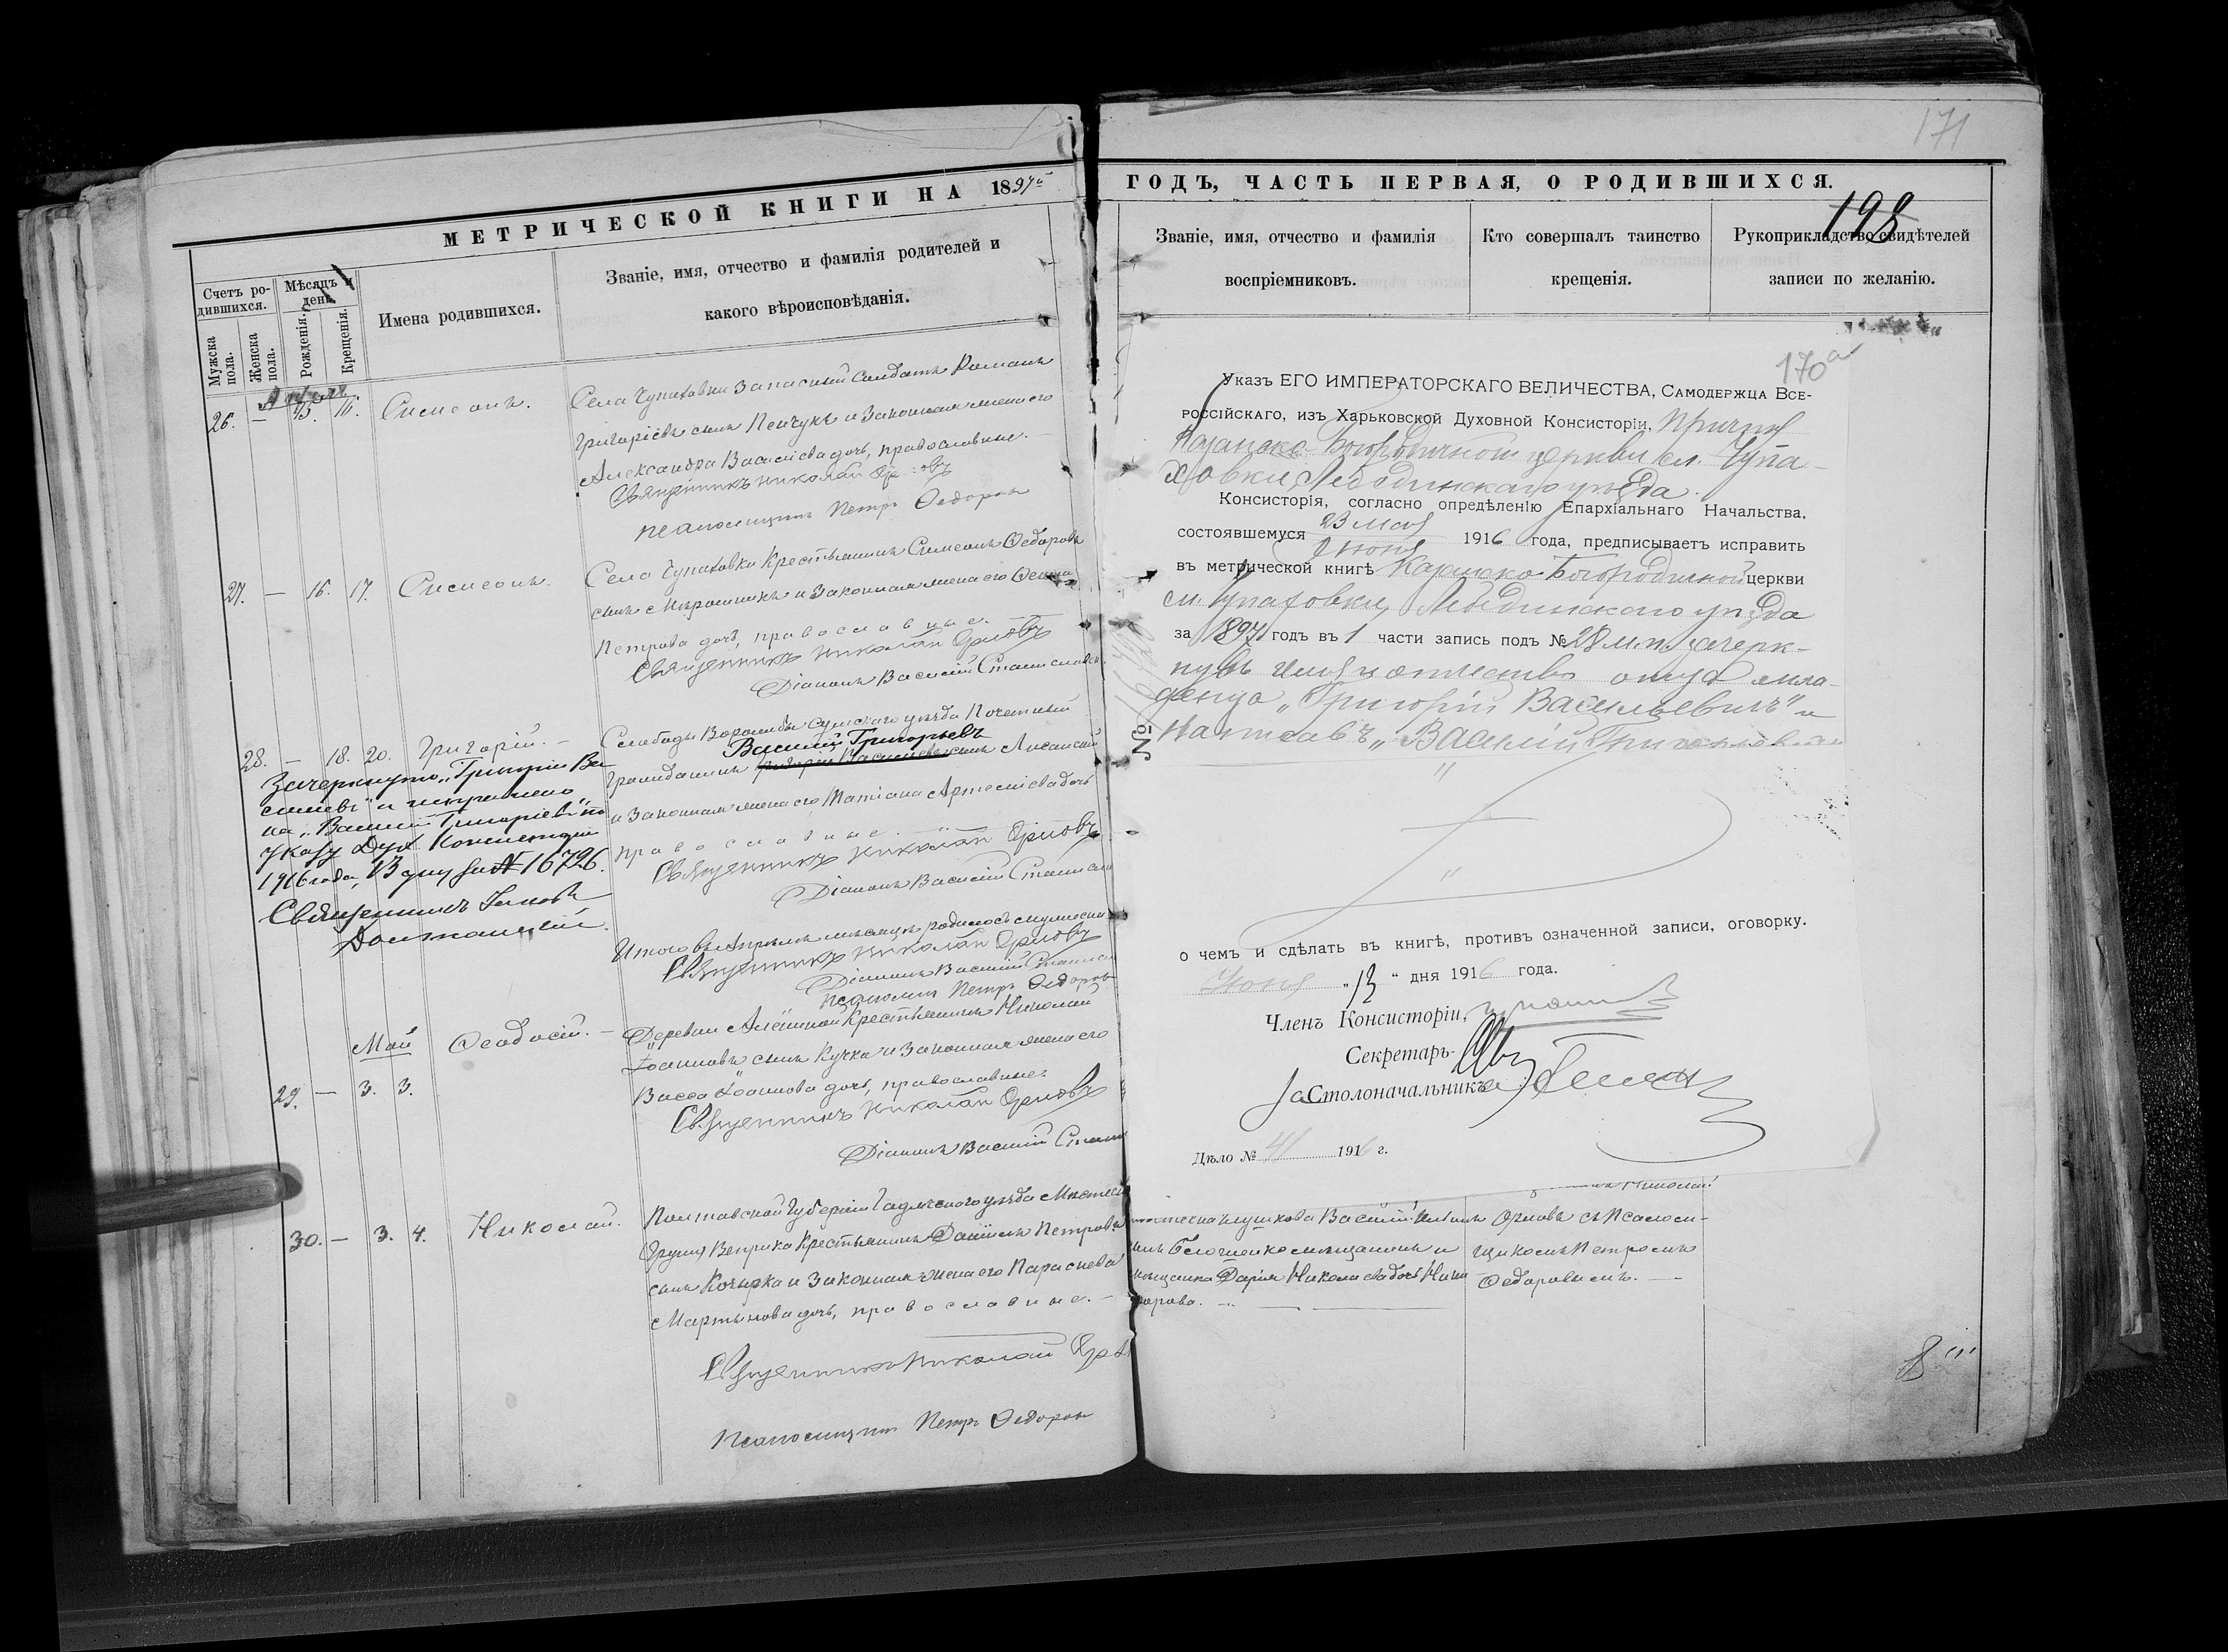 171
МЕТРИЧЕСКОЙ КНИГИ НА 1897й
ГОДЪ, ЧАСТЬ ПЕРВАЯ, О РОДИВШИХСЯ.
198
Счетъ ро-
дившихся.
Мужска
пола.
Женска
пола.
Мѣсяцъ и
день.
Рожденія.
Крещенія.
Имена родившихся.
Званіе, имя, отчество и фамилія родителей и
какого вѣроисповѣданія.
Апрѣля
26. — 15. 16. Симеонъ.
Села Чупаховки Запасный Солдатъ Романъ
Григоріевъ сынъ Пенчукъ и Законная жена его
Александра Василіева дочь, православные. —
Священникъ Николай
Псаломщикъ Петръ Ѳедоровъ
27. — 16. 17. Симеонъ.
Села Чупаховки Крестьянинъ Симеонъ Ѳедоровъ
сынъ Мирошникъ и Законная жена его
Петрова дочь, православные.
Священникъ Николай Орловъ
Діаконъ Василій
28. — 18. 20. Григорій. —
Слободы Ворожбы Сумскаго уѣзда Почетный
Василій Григорьевъ
Гражданинъ Григорій Василіевъ сынъ Лисанскій
и Законная жена его Татіана Артеміева дочь
православные. —
Священникъ Николай Орловъ
Діаконъ Василій
Зачеркнуто „Григорій Ва-
силіевъ" и исправлено
на „Василій Григоріевъ" по
указу Дух. Консисторіи
1916 года, 13 іюня за № 16726.
Священникъ
Итого въ Апрѣлѣ мѣсяцѣ родилось мужеска
Священникъ Николай Орловъ
Діаконъ Василій
Псаломщ. Петръ Ѳедоров
Май
29. — 3. 3. Ѳеодосій. —
Деревни Алёшной Крестьянинъ Николай
Іоанновъ сынъ Кучка и Законная жена его
Васса Іоаннова дочь, православные.
Священникъ Николай Орловъ
Діаконъ Василій
30. — 3. 4. Николай.
Полтавской Губерніи Гадячскаго уѣзда Мѣстеч
Груня, Веприка Крестьянинъ Даніилъ Петровъ
сынъ Козырка и Законная жена его Параскева
Мартынова дочь, православные. —
Священникъ Николай
Псаломщикъ Петръ Ѳедоровъ
Званіе, имя, отчество и фамилія
воспріемниковъ.
Кто совершалъ таинство
крещенія.
Рукоприкладство свидѣтелей
записи по желанію.
170а
Указъ ЕГО ИМПЕРАТОРСКАГО ВЕЛИЧЕСТВА, Самодержца Все-
россійскаго, изъ Харьковской Духовной Консисторіи, Причту
Казанско-Богородичной церкви сл. Чупа-
ховки, Лебединскаго уѣзда.
Консисторія, согласно опредѣленію Епархіальнаго Начальства,
состоявшемуся 23 Мая / 2 Іюня 1916 года, предписываетъ исправить
въ метрической книгѣ Казанско-Богородичной церкви
сл. Чупаховки, Лебединскаго уѣзда
за 1897 годъ въ 1 части запись подъ № 28 м. п. зачерк-
нувъ имя и отчество отца мла-
денца „Григорій Васильевичъ" и
написавъ „Василій Григорьевичъ
№
о чемъ и сдѣлать въ книгѣ, противъ означенной записи, оговорку.
Іюня „13" дня 1916 года.
Членъ Консисторіи,
Секретарь
За Столоначальника
Дѣло № 41 1916 г.
Николай
Василій
Орловъ съ Псалом-
мѣщанинъ и
щикомъ Петромъ
Дарія Николаева дочь
Ѳедоровымъ. —
8